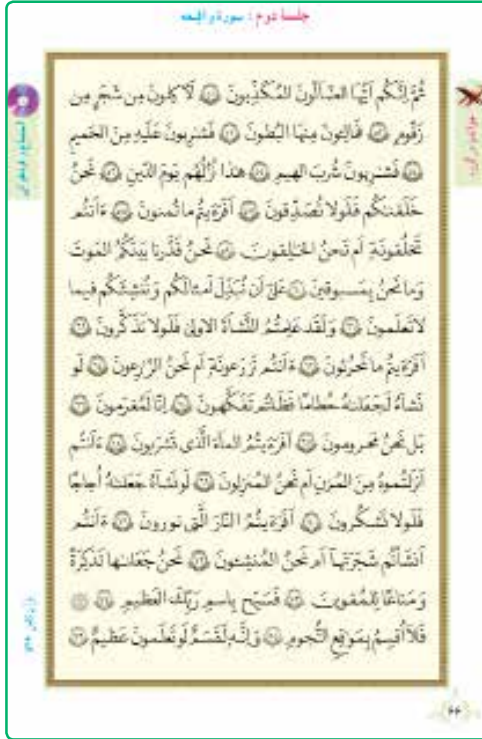 جلسهٔ دوم: سورهٔ واقعه
ثُمَّ اِنَّكُم اَيُّهَا الضّالّونَ المُكَذِّبونَ ﴿٥١﴾ لَآكِلونَ مِن شَجَرٍ مِن
زَقّومٍ ﴿٥٢﴾ فَمالِئونَ مِنهَا البُطونَ ﴿٥٣﴾ فَشارِبونَ عَلَيهِ مِنَ الحَميمِ
﴿٥٤﴾ فَشارِبونَ شُربَ الهيمِ ﴿٥٥﴾ هٰذا نُزُلُهُم يَومَ الدّينِ ﴿٥٦﴾ نَحنُ
خَلَقناكُم فَلَولا تُصَدِّقونَ ﴿٥٧﴾ اَفَرَءَيتُم ما تُمنونَ ﴿٥٨﴾ ءَاَنتُم
تَخلُقونَهٓ اَم نَحنُ الخالِقونَ ﴿٥٩﴾ نَحنُ قَدَّرنا بَينَكُمُ المَوتَ
وَ ما نَحنُ بِمَسبوقينَ ﴿٦٠﴾ عَلىٰٓ اَن نُبَدِّلَ اَمثالَكُم وَ نُنشِئَكُم فيما
لا تَعلَمونَ ﴿٦١﴾ وَ لَقَد عَلِمتُمُ النَّشاَةَ الاولىٰ فَلَولا تَذَكَّرونَ ﴿٦٢﴾
اَفَرَءَيتُم ما تَحرُثونَ ﴿٦٣﴾ ءَاَنتُم تَزرَعونَهٓ اَم نَحنُ الزّارِعونَ ﴿٦٤﴾ لَو
نَشآءُ لَجَعَلناهُ حُطامًا فَظَلتُم تَفَكَّهونَ ﴿٦٥﴾ اِنّا لَمُغرَمونَ ﴿٦٦﴾
بَل نَحنُ مَحرومونَ ﴿٦٧﴾ اَفَرَءَيتُمُ المآءَ الَّذى تَشرَبونَ ﴿٦٨﴾ ءَاَنتُم
اَنزَلتُموهُ مِنَ المُزنِ اَم نَحنُ المُنزِلونَ ﴿٦٩﴾ لَو نَشآءُ جَعَلناهُ اُجاجًا
فَلَولا تَشكُرونَ ﴿٧٠﴾ اَفَرَءَيتُمُ النّارَ الَّتى تورونَ ﴿٧١﴾ ءَاَنتُم
اَنشَأتُم شَجَرَتَهآ اَم نَحنُ المُنشِئونَ ﴿٧٢﴾ نَحنُ جَعَلناها تَذكِرَةً
وَ مَتاعًا لِلمُقوينَ ﴿٧٣﴾ فَسَبِّح بِاسمِ رَبِّكَ العَظيمِ ﴿٧٤﴾
فَلآ اُقسِمُ بِمَواقِعِ النُّجومِ ﴿٧٥﴾ وَ اِنَّهٗ لَقَسَمٌ لَو تَعلَمونَ عَظيمٌ ﴿٧٦﴾
۶۶